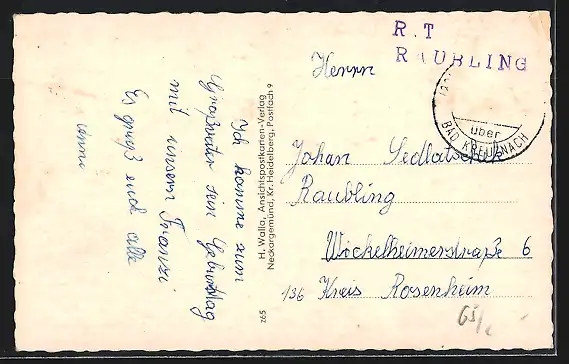 Ich komme zum
Großvater sein Geburtstag
mit unsern Franzi
Es grüßt euch alle
H. Walla, Ansichtspostkarten-Verlag
Neckargemünd, Kr. Heidelberg, Postfach 9
z65
R. T
RAUBLING
über
BAD KREUZNACH
Herrn
Johan
Raubling
Wöckelheimerstraße 6
136 Kreis Rosenheim